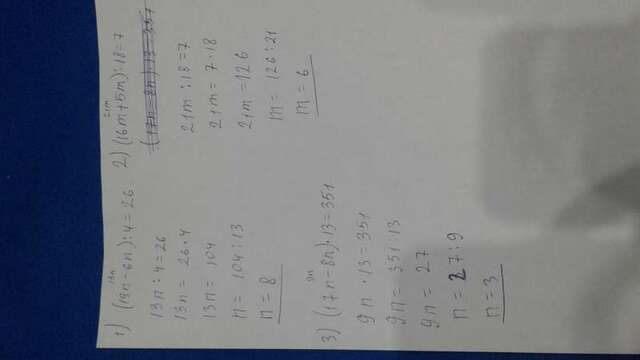 13n
1) (19n-6n):4=26
13n:4=26
13n= 26·4
13n= 104
n= 104:13
n= 8
21m
2) (16m+5m):18=7
(17n-8n)·13=351
21m:18=7
21m=7·18
21m=126
m= 126:21
m= 6
9n
3) (17n-8n)·13=351
9n·13=351
9n= 351:13
9n= 27
n=27:9
n=3